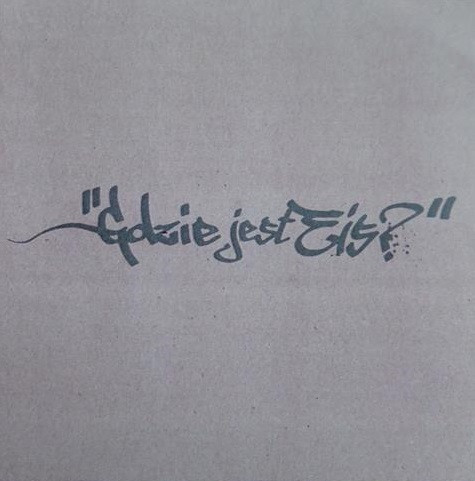 "Gdzie jest Eis?"